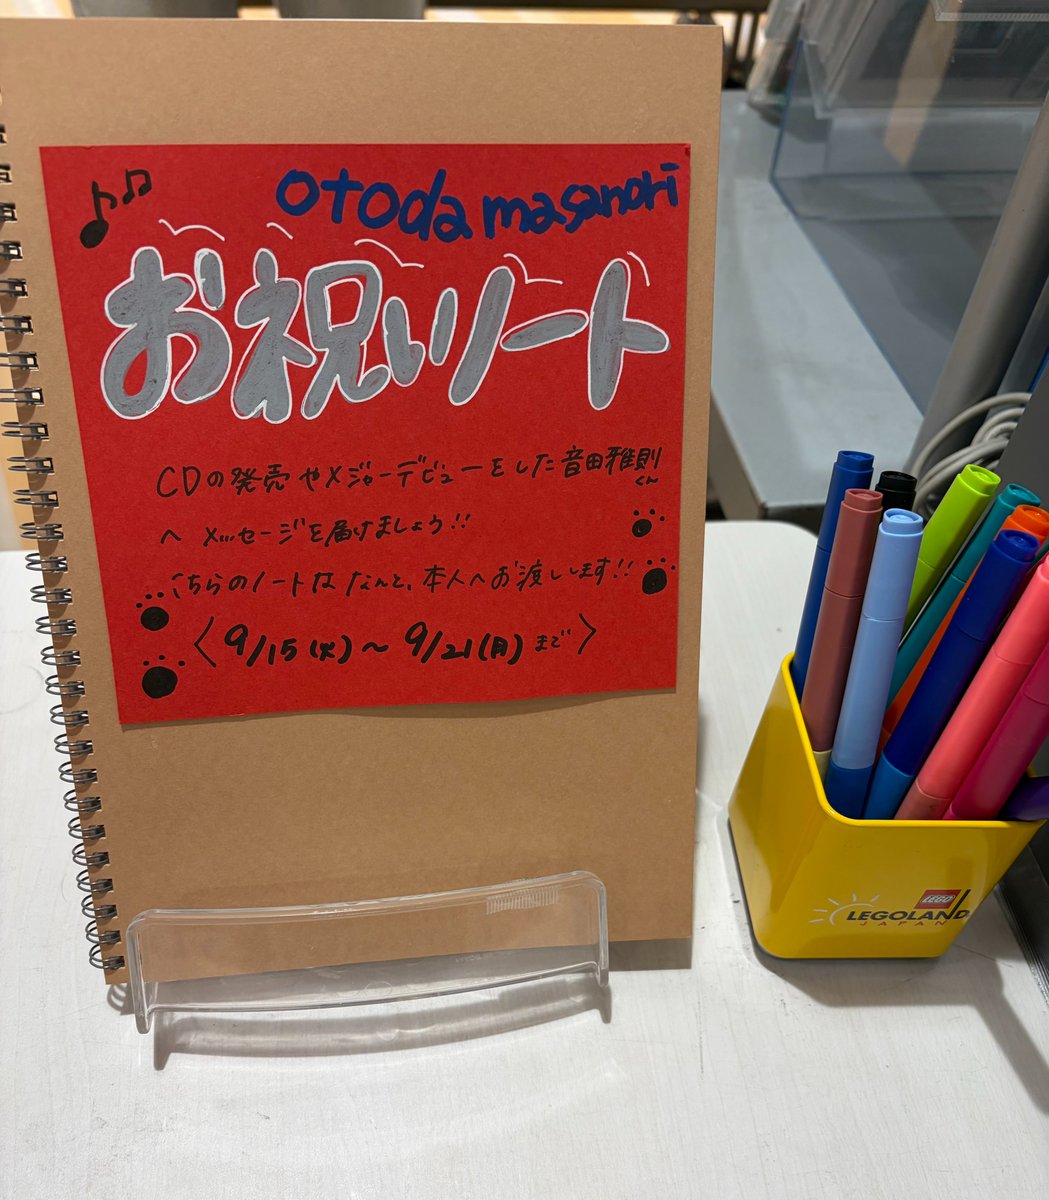 otoda masanori
お祝いノート
CDの発売やメジャーデビューをした音田雅則くん
へ メッセージを届けましょう!!
こちらのノートは なんと、本人へお渡しします!!
〈9/15(火)〜9/21(月)まで〉
LEGO
LEGOLAND
JAPAN